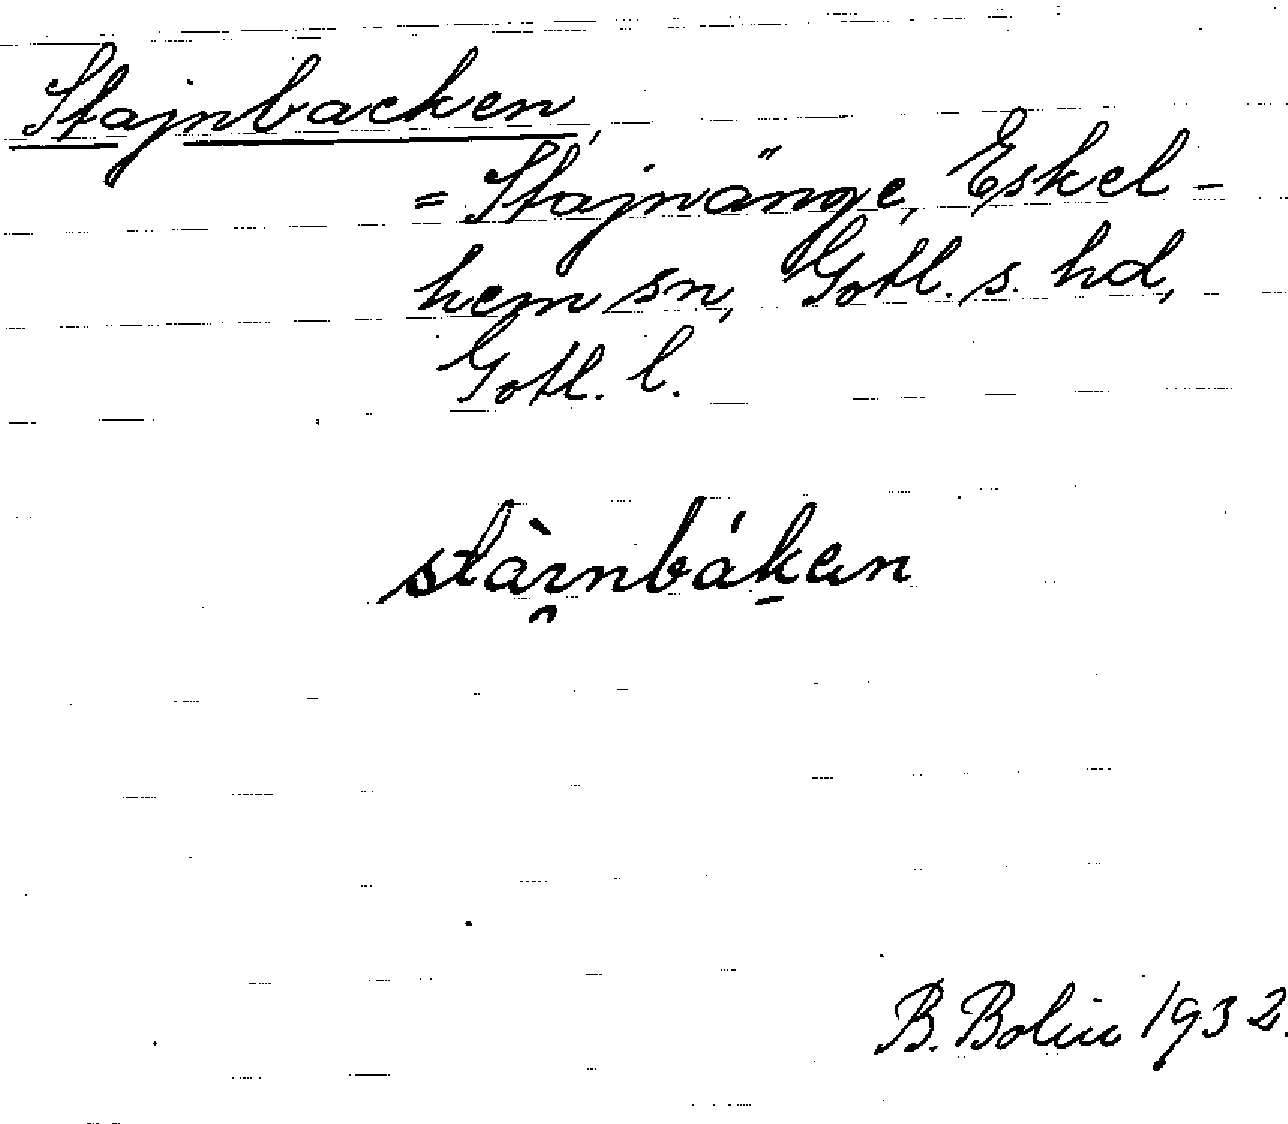 Stajnbacken,
= Stajnänge, Eskel-
hem sn, Gotl. s. hd,
Gotl. l.
stàɪ̯nbák̠ɐn
B. Bolin 1932.